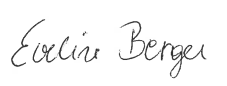 Evelin Berger